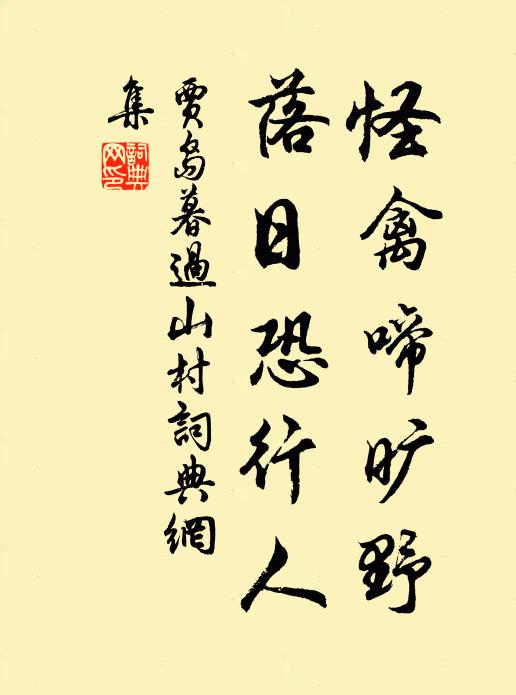 怪禽啼旷野
落日恐行人
賈島暮過山村詞典網
集
詞典網印